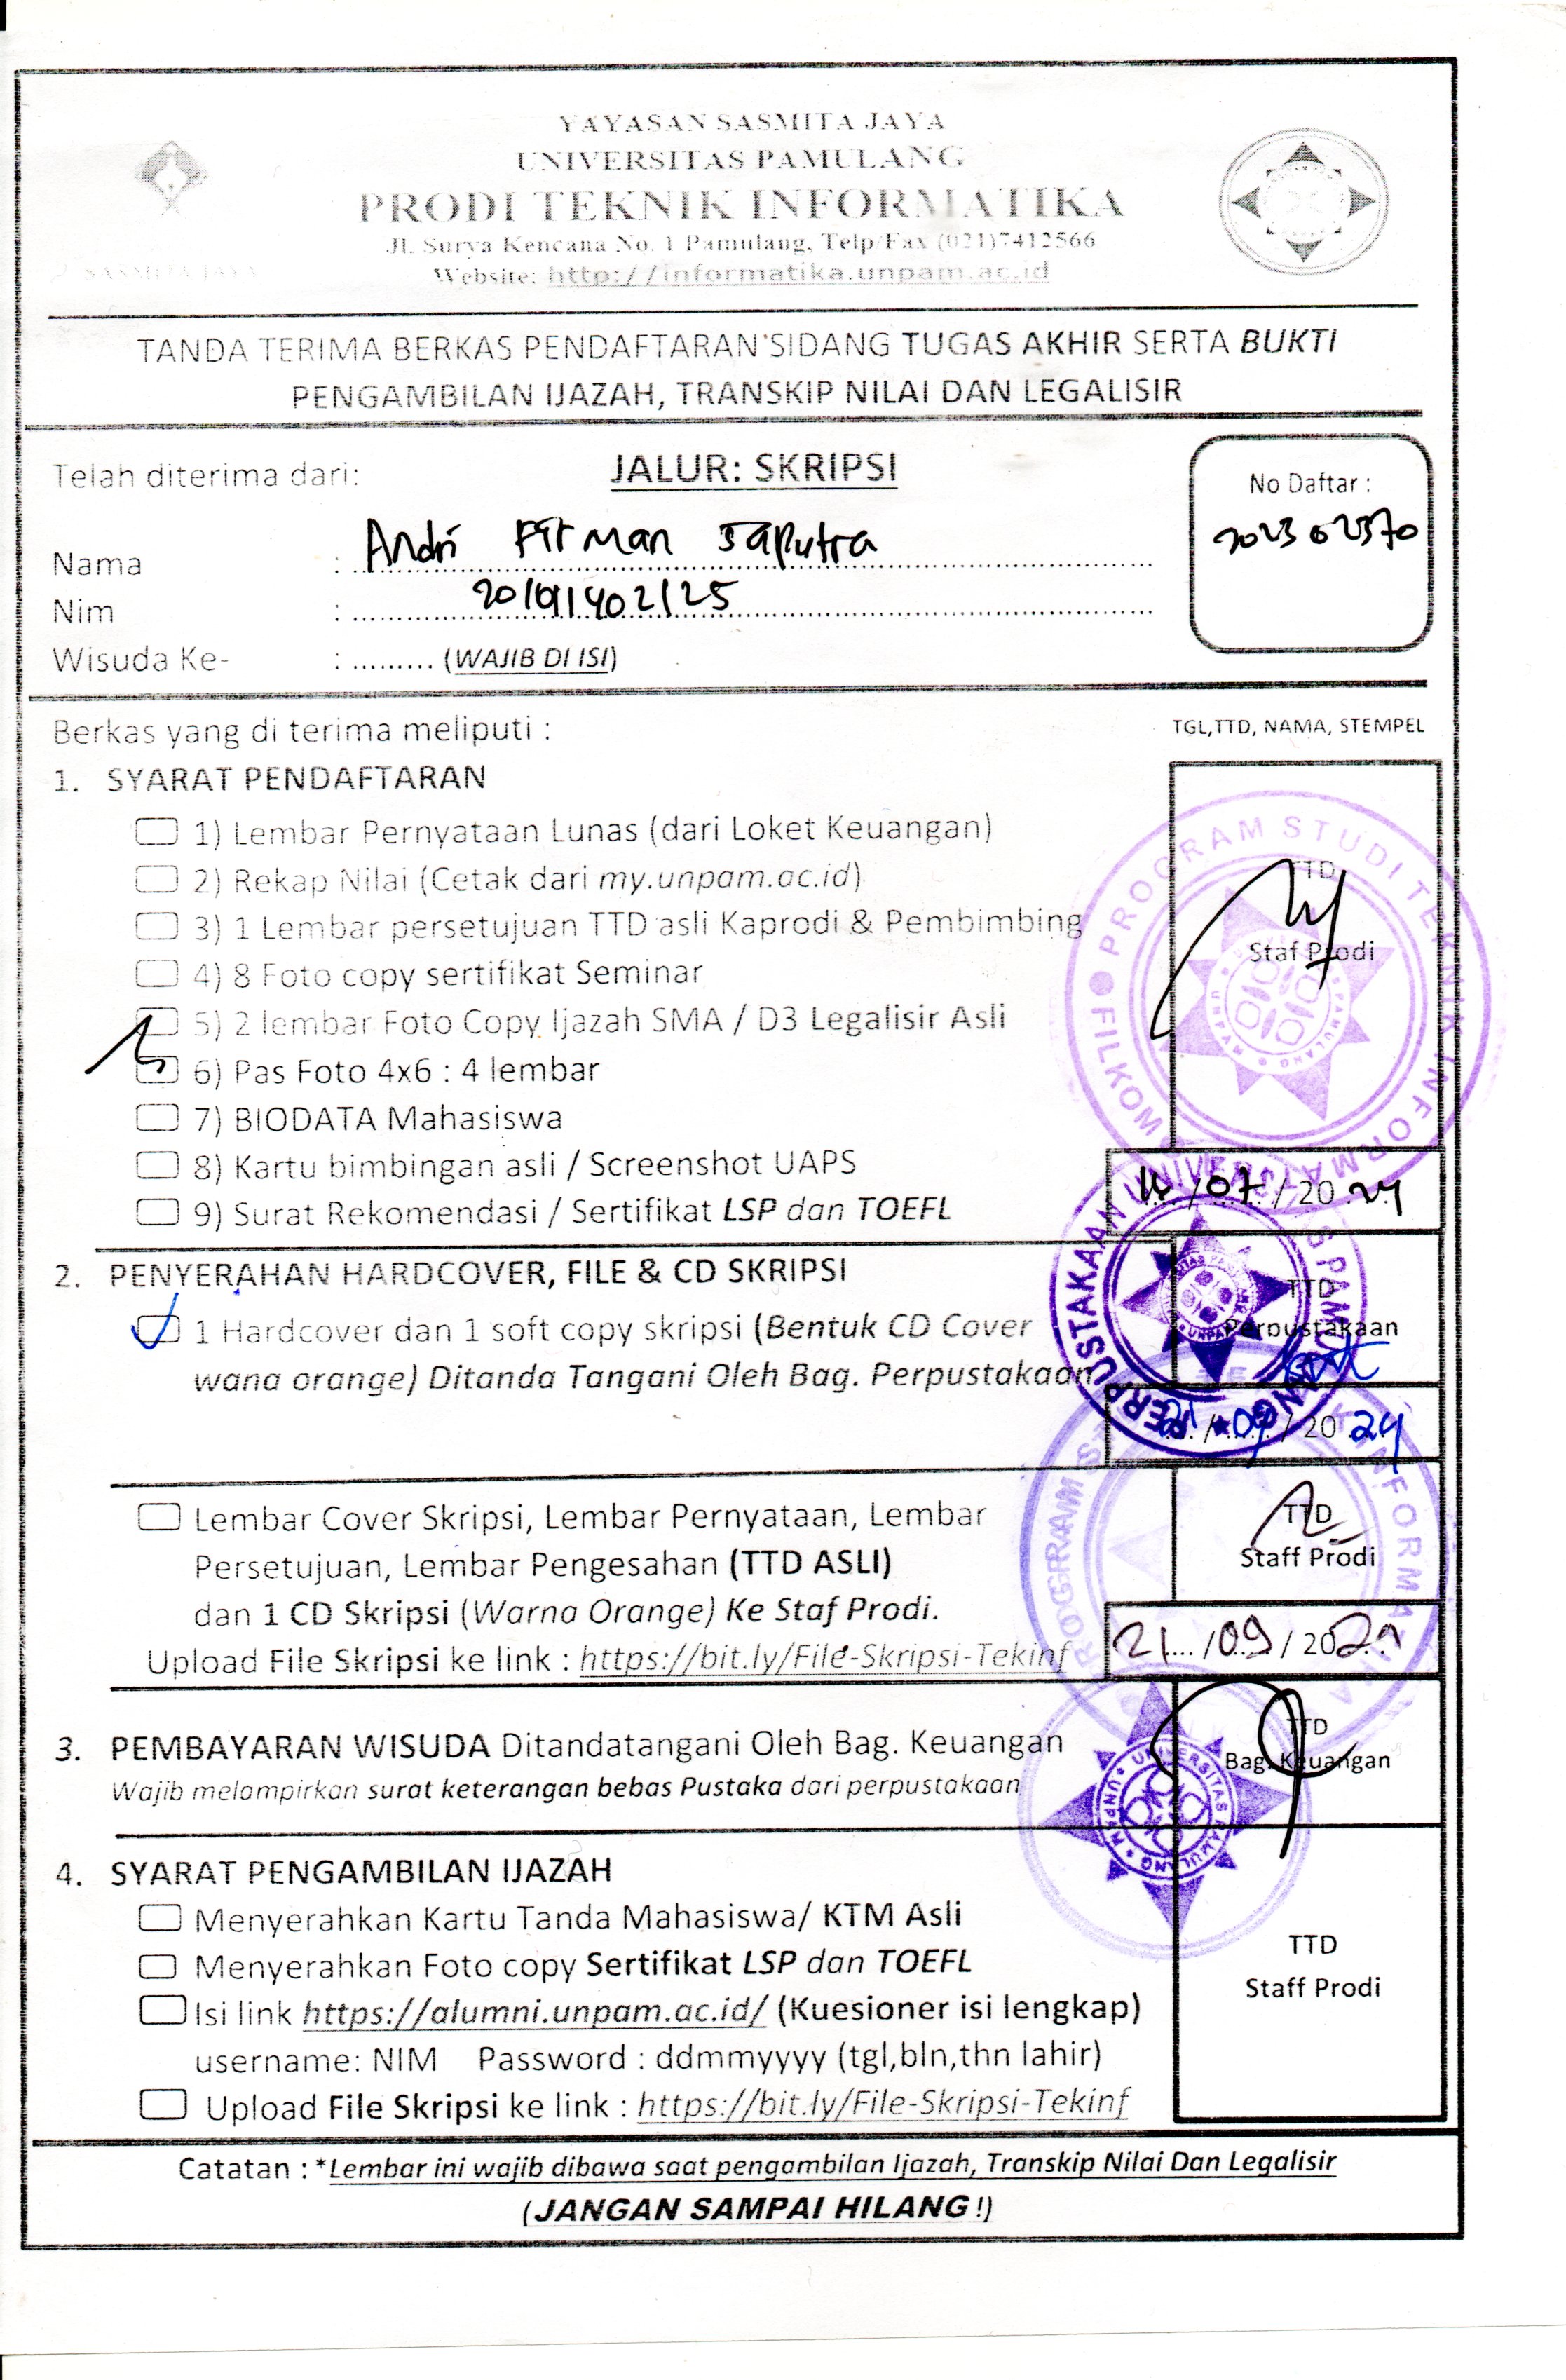 YAYASAN SASMITA JAYA
UNIVERSITAS PAMULANG
PRODI TEKNIK INFORMATIKA
Jl. Surya Kencana No. 1 Pamulang, Telp/Fax (021)7412566
Website: http://informatika.unpam.ac.id
SASMITA JAYA
TANDA TERIMA BERKAS PENDAFTARAN SIDANG TUGAS AKHIR SERTA BUKTI
PENGAMBILAN IJAZAH, TRANSKIP NILAI DAN LEGALISIR
Telah diterima dari: JALUR: SKRIPSI
No Daftar :
Nama : Andri Firman Saputra
Nim :
Wisuda Ke- : ......... (WAJIB DI ISI)
Berkas yang di terima meliputi :
TGL,TTD, NAMA, STEMPEL
1. SYARAT PENDAFTARAN
1) Lembar Pernyataan Lunas (dari Loket Keuangan)
2) Rekap Nilai (Cetak dari my.unpam.ac.id)
3) 1 Lembar persetujuan TTD asli Kaprodi & Pembimbing
4) 8 Foto copy sertifikat Seminar
5) 2 lembar Foto Copy Ijazah SMA / D3 Legalisir Asli
6) Pas Foto 4x6 : 4 lembar
7) BIODATA Mahasiswa
8) Kartu bimbingan asli / Screenshot UAPS
9) Surat Rekomendasi / Sertifikat LSP dan TOEFL
TTD
Staf Prodi
/ 07 / 20 24
2. PENYERAHAN HARDCOVER, FILE & CD SKRIPSI
1 Hardcover dan 1 soft copy skripsi (Bentuk CD Cover
wana orange) Ditanda Tangani Oleh Bag. Perpustakaan
TTD
Perpustakaan
/ 09 / 20 24
Lembar Cover Skripsi, Lembar Pernyataan, Lembar
Persetujuan, Lembar Pengesahan (TTD ASLI)
dan 1 CD Skripsi (Warna Orange) Ke Staf Prodi.
Upload File Skripsi ke link : https://bit.ly/File-Skripsi-Tekinf
TTD
Staff Prodi
21 / 09 / 20
3. PEMBAYARAN WISUDA Ditandatangani Oleh Bag. Keuangan
Wajib melampirkan surat keterangan bebas Pustaka dari perpustakaan
TTD
Bag. Keuangan
4. SYARAT PENGAMBILAN IJAZAH
Menyerahkan Kartu Tanda Mahasiswa/ KTM Asli
Menyerahkan Foto copy Sertifikat LSP dan TOEFL
Isi link https://alumni.unpam.ac.id/ (Kuesioner isi lengkap)
username: NIM Password : ddmmyyyy (tgl,bln,thn lahir)
Upload File Skripsi ke link : https://bit.ly/File-Skripsi-Tekinf
TTD
Staff Prodi
Catatan : *Lembar ini wajib dibawa saat pengambilan Ijazah, Transkip Nilai Dan Legalisir
(JANGAN SAMPAI HILANG !)
PROGRAM STUDI TEKNIK INFORMATIKA
FILKOM
PERPUSTAKAAN UNIVERSITAS PAMULANG
UNIVERSITAS PAMULANG
UNPAM